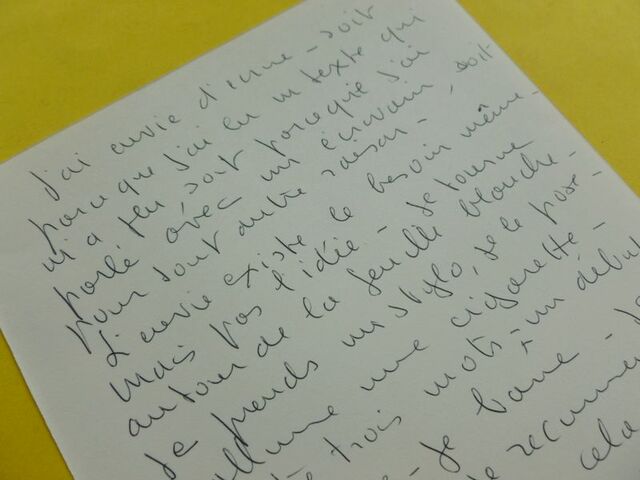 J'ai envie d'écrire - soit
parce que j'ai lu un texte qui
m'a plu, soit parce que j'ai
parlé avec un écrivain, soit
pour tout autre raison -
L'envie existe le besoin même -
Mais pas l'idée - Je tourne
autour de la feuille blanche -
Je prends un stylo, je le pose -
allume une cigarette -
trois mots - un début
- Je barre -
recommence
cela